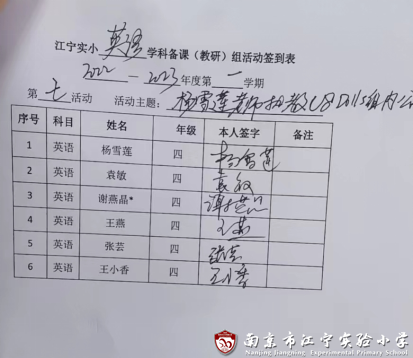 江宁实小 英语 学科备课（教研）组活动签到表
2022 — 2023年度第 一 学期
第 七 活动 活动主题： 杨雪莲老师执教
序号 科目 姓名 年级 本人签字 备注
1 英语 杨雪莲 四 杨雪莲
2 英语 袁敏 四 袁敏
3 英语 谢燕晶* 四
4 英语 王燕 四 王燕
5 英语 张芸 四 张芸
6 英语 王小香 四 王小香
南京市江宁实验小学
Nanjing Jiangning Experimental Primary School